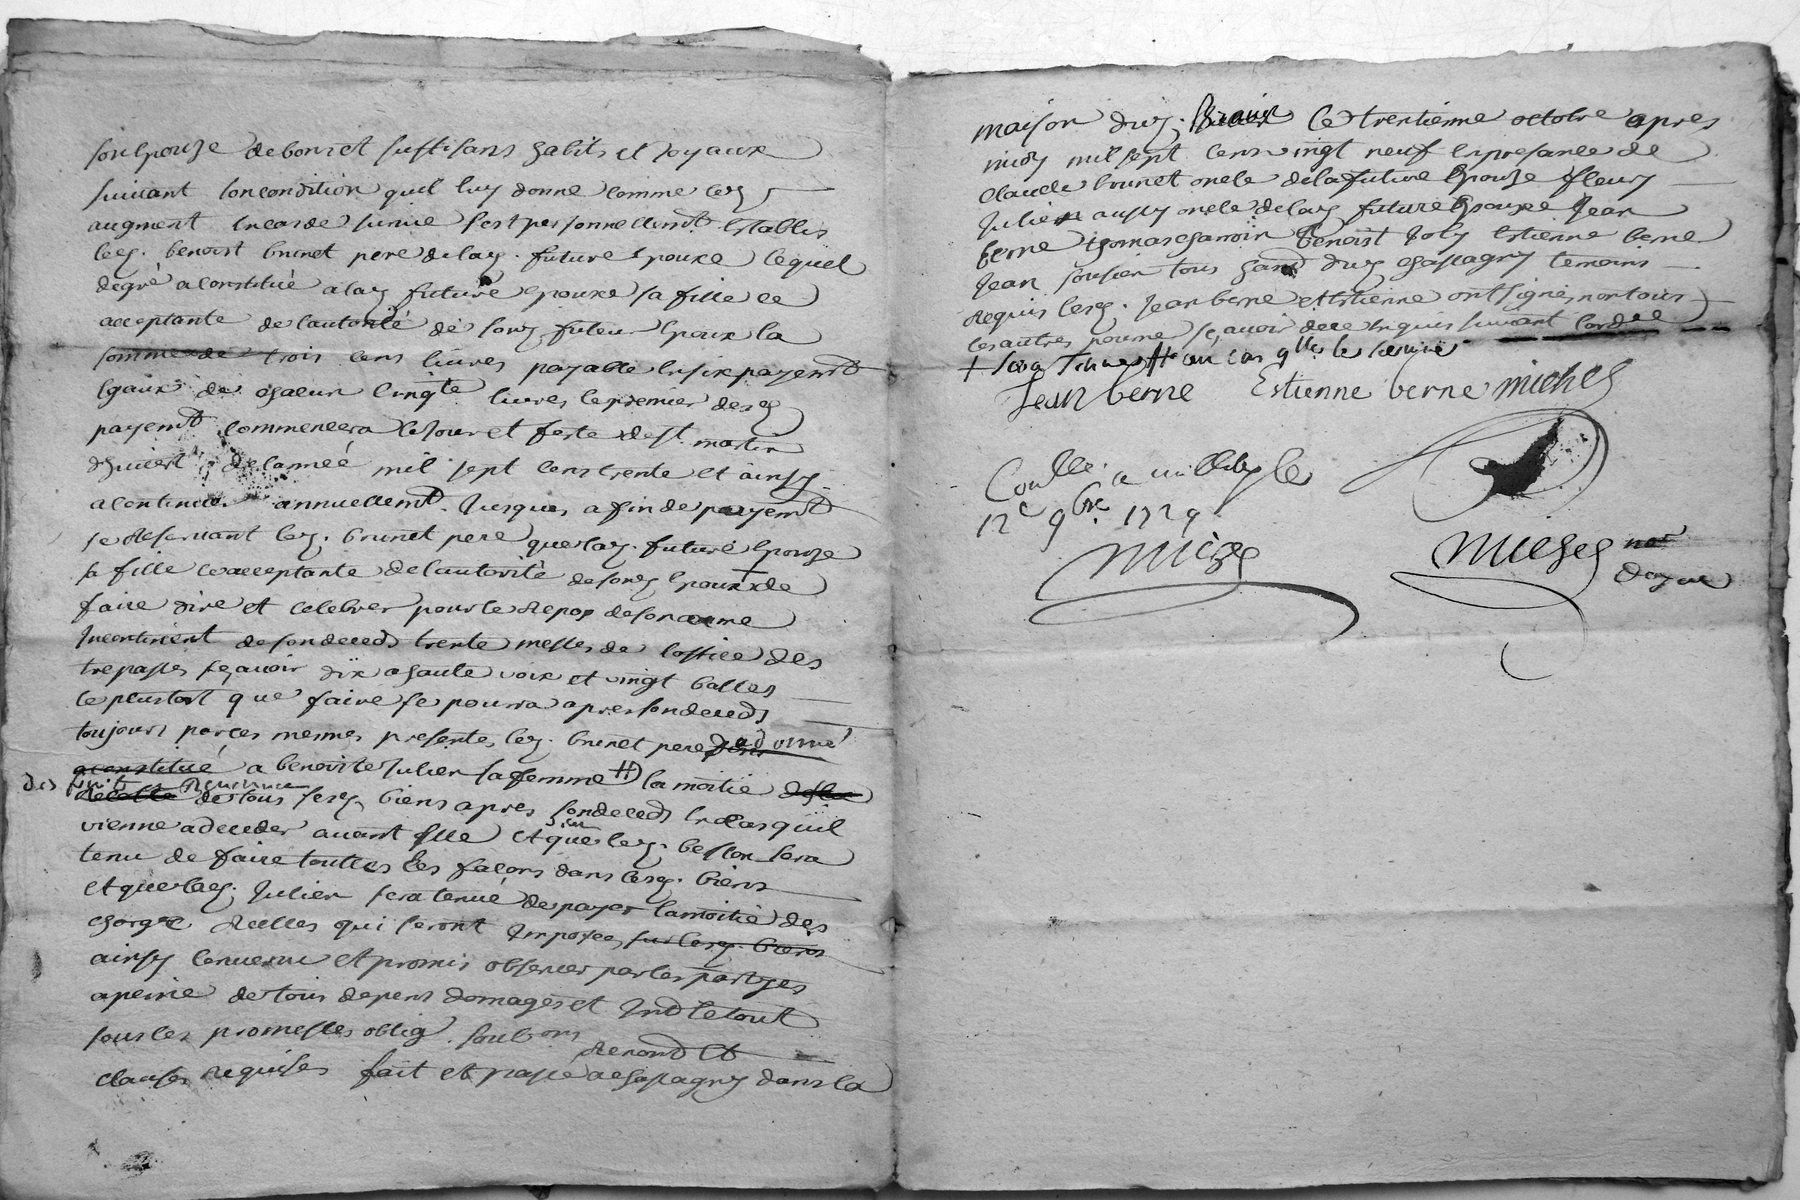 son Epouze de bons et suffisans habits et Joyaux
suivant son condition quil luy donne comme les
augment En cas de survie s'est personnellemt Establis
led. benoist brunet pere de lad. future Epouze lequel
degré a constitué a lad. future Epouze sa fille ce
acceptante de l'autorité de son futeur Epoux la
somme de trois cens livres payable En six payemt
Egaux de chacun Cinqte livres le premier desd
payemt commencera le Jour et feste de st. martin
d'hiver de l'anneé mil sept cens trente et ainsy
a continuer annuellemt. Jusques a fin de payemt
se reservant led. brunet pere que lad. future Epouze
sa fille ce acceptante de l'autorité de sond Epoux + de
faire dire et celebrer pour le Repos de son ame
Incontinent de son deceds trente messes de l'office des
trepassés sçavoir dix a haute voix et vingt basses
le plustost que faire se pourra apres son deceds
toujours par ces mesmes presentes led. brunet pere a donné
a constitué a benoiste Julien sa femme # la moitié
des fruits Revenue de tous sesd. biens apres son deceds En Cas quil
vienne a deceder avant Elle et que led. beslon sera
tenu de faire touttes les façons dans lesd. biens
et que lad. Julien sera tenue de payer la moitié des
charges reelles qui seront Imposees sur lesd. biens
ainsy convenu et promis observer par les partyes
a peine de tous depens domages et Ind le tout
sous les promesses oblig. soubons Renond et
clauses requises fait et passé a chassagny dans la
maison dud. le trentienne octobre apres
midy mil sept cens vingt neuf En presance de
Claude brunet oncle de la future Epouze fleury
Julien aussy oncle de lad. future Epouze Jean
berne thomas chamoin benoist Joly Estienne berne
Jean sousier tous hantd dud. chassagny temoins
Requis lesd. Jean berne et Estienne ont signés non tous
les autres pour ne sçavoir de ce Enquis suivant l'ordce
+ # au cas qlle le survive
Jean berne Estienne berne michel
Conllé a
12e 9bre. 1729
michel
michel nore
Royal